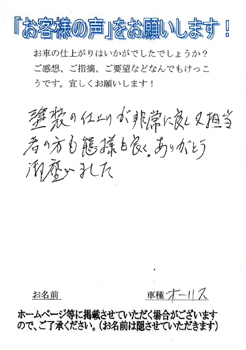 「お客様の声」をお願いします！
お車の仕上がりはいかがでしたでしょうか？
ご感想、ご指摘、ご要望などなんでもけっこ
うです。宜しくお願いします！
塗装の仕上りが非常に良く又担当
者の方も態様も良く。ありがとう
御座いました
お名前
車種 オーリス
ホームページ等に掲載させていただく場合がございます
ので、ご了承ください。（お名前は隠させていただきます）